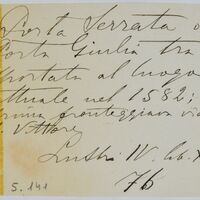 Porta Serrata o
Porta Giulia tra
sportata al luogo
attuale nel 1582;
prima fronteggiava via
S. Vittore
W. lib. X
76
5. 141